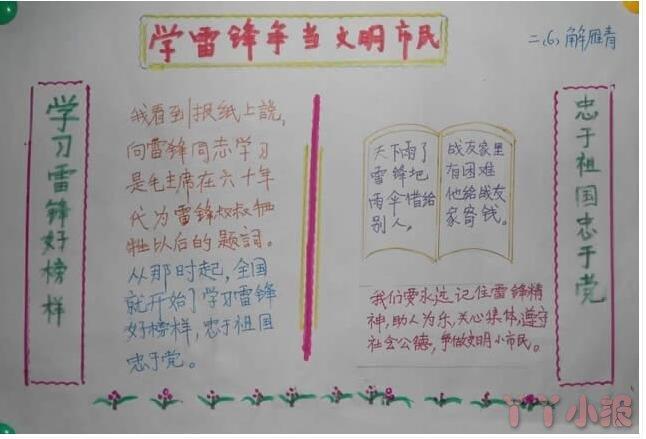 学雷锋争当文明市民
二、(6) 解雁青
学习雷锋好榜样
我看到报纸上说，
向雷锋同志学习
是毛主席在六十年
代为雷锋叔叔牺
牲以后的题词。
从那时起，全国
就开始了学习雷锋
好榜样，忠于祖国
忠于党。
天下雨了
雷锋把
雨伞借给
别人。
战友家里
有困难
他给战友
家寄钱。
我们要永远记住雷锋精
神，助人为乐，关心集体，遵守
社会公德，争做文明小市民。
忠于祖国忠于党
丫丫小报